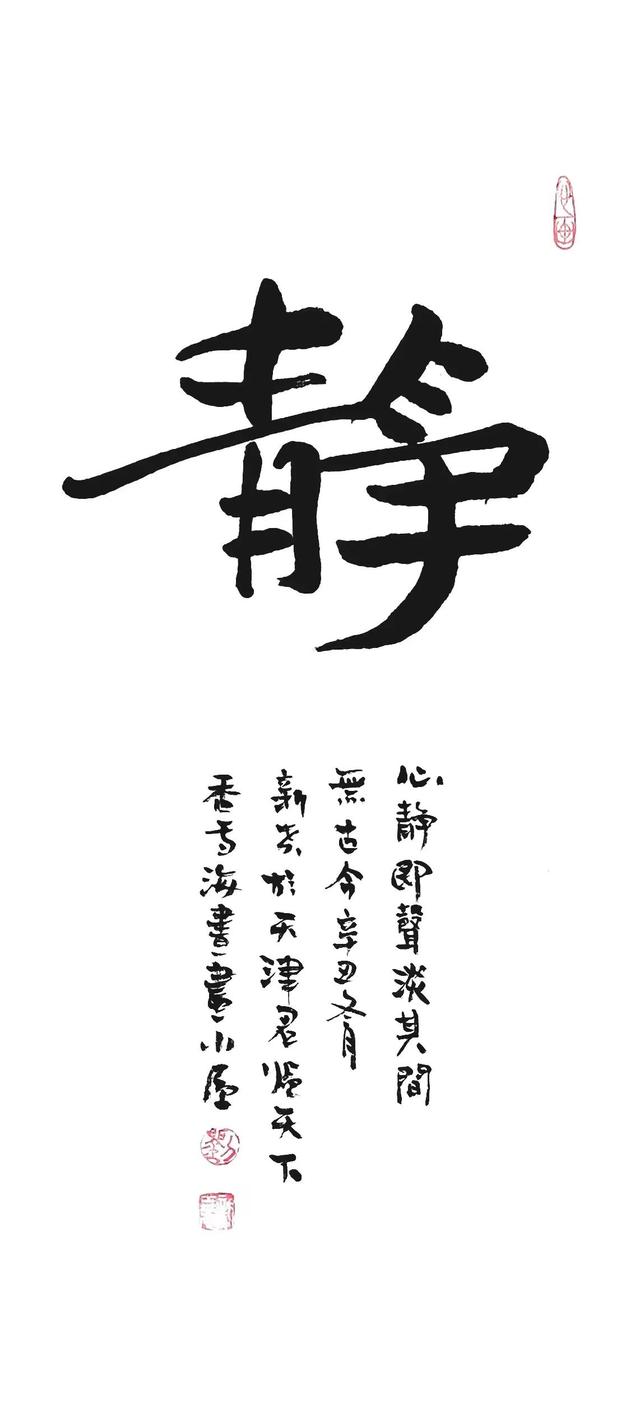 静
心静即聲淡其間
無古今辛丑冬月
新於天津君天下
香雪海書畫小屋